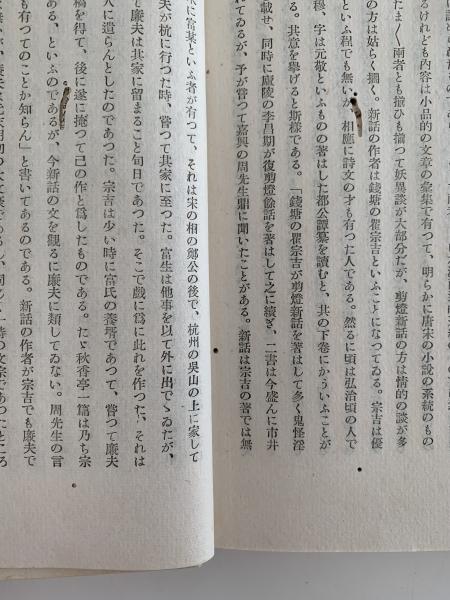 るけれども内容は小品的の文章の彙集で有つて、明らかに唐宋の小説の系統のもの
たま〱兩者とも揃ひも揃つて妖異談が大部分だが、剪燈新話の方は情的の談が多
の方は姑らく措く。新話の作者は錢塘の瞿宗吉といふことになつてゐる。宗吉は優
といふ程でも無いが、相應に詩文の才も有つた人である。然るに頃は弘治頃の人で
穆、字は元敬といふものの著はした都公譚纂を讀むと、其の下卷にかういふことが
る。其意を擧げると斯樣である。「錢塘の瞿宗吉が剪燈新話を著はして多く鬼怪淫
載せ、同時に廬陵の李昌期が復剪燈餘話を著はして之に續ぎ、二書は今盛んに市井
れてゐるが、予が嘗つて嘉興の周先生鼎に聞いたことがある。新話は宗吉の著では無
に富某といふ者が有つて、それは宋の相の鄭公の後で、杭州の吳山の上に家して
夫が杭に行つた時、嘗つて其家に至つた。富生は他事を以て外に出でゐたが、
で廉夫は其家に留まること旬日であつた。そこで戲に爲に此れを作つた、それは
人に遣らんとしたのであつた。宗吉は少い時に富氏の養壻であつて、嘗つて廉夫
稿を得て、後に遂に掩つて己の作と爲したものである。たゞ秋香亭一篇は乃ち宗
ある、といふのであるが、今新話の文を觀るに廉夫に類してゐない。周先生の言
も有つてのことか知らん」と書いてあるのである。新話の作者が宗吉でも廉夫で